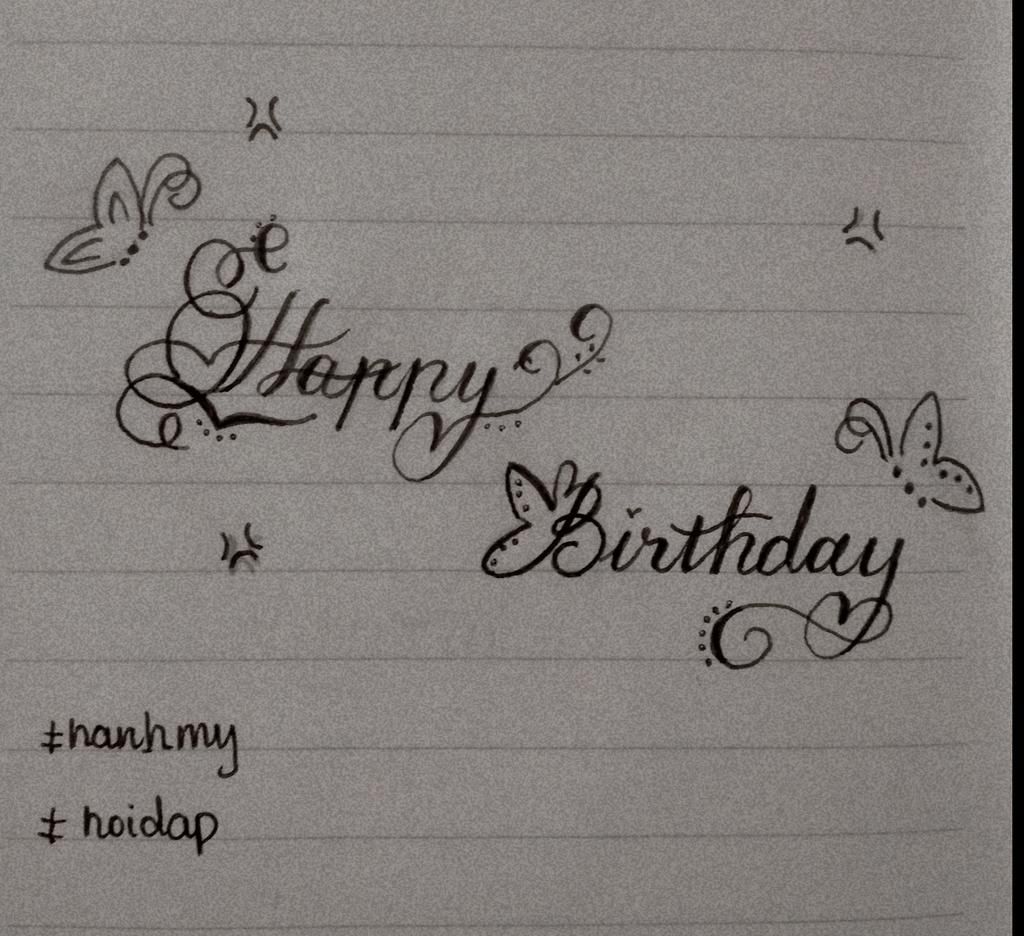 Happy
Birthday
#hanhmy
# hoidap